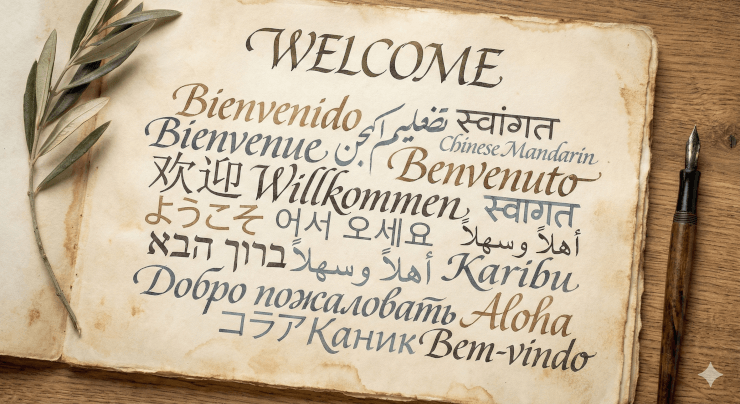 WELCOME
Bienvenido स्वांगत
Chinese Mandarin
Bienvenue Benvenuto
欢迎 Willkommen स्वागत
ようこそ 어서 오세요 أهلاً وسهلاً
ברוך הבא أهلاً وسهلاً Karibu
Добро пожаловать Aloha
コラア Каник Bem-vindo